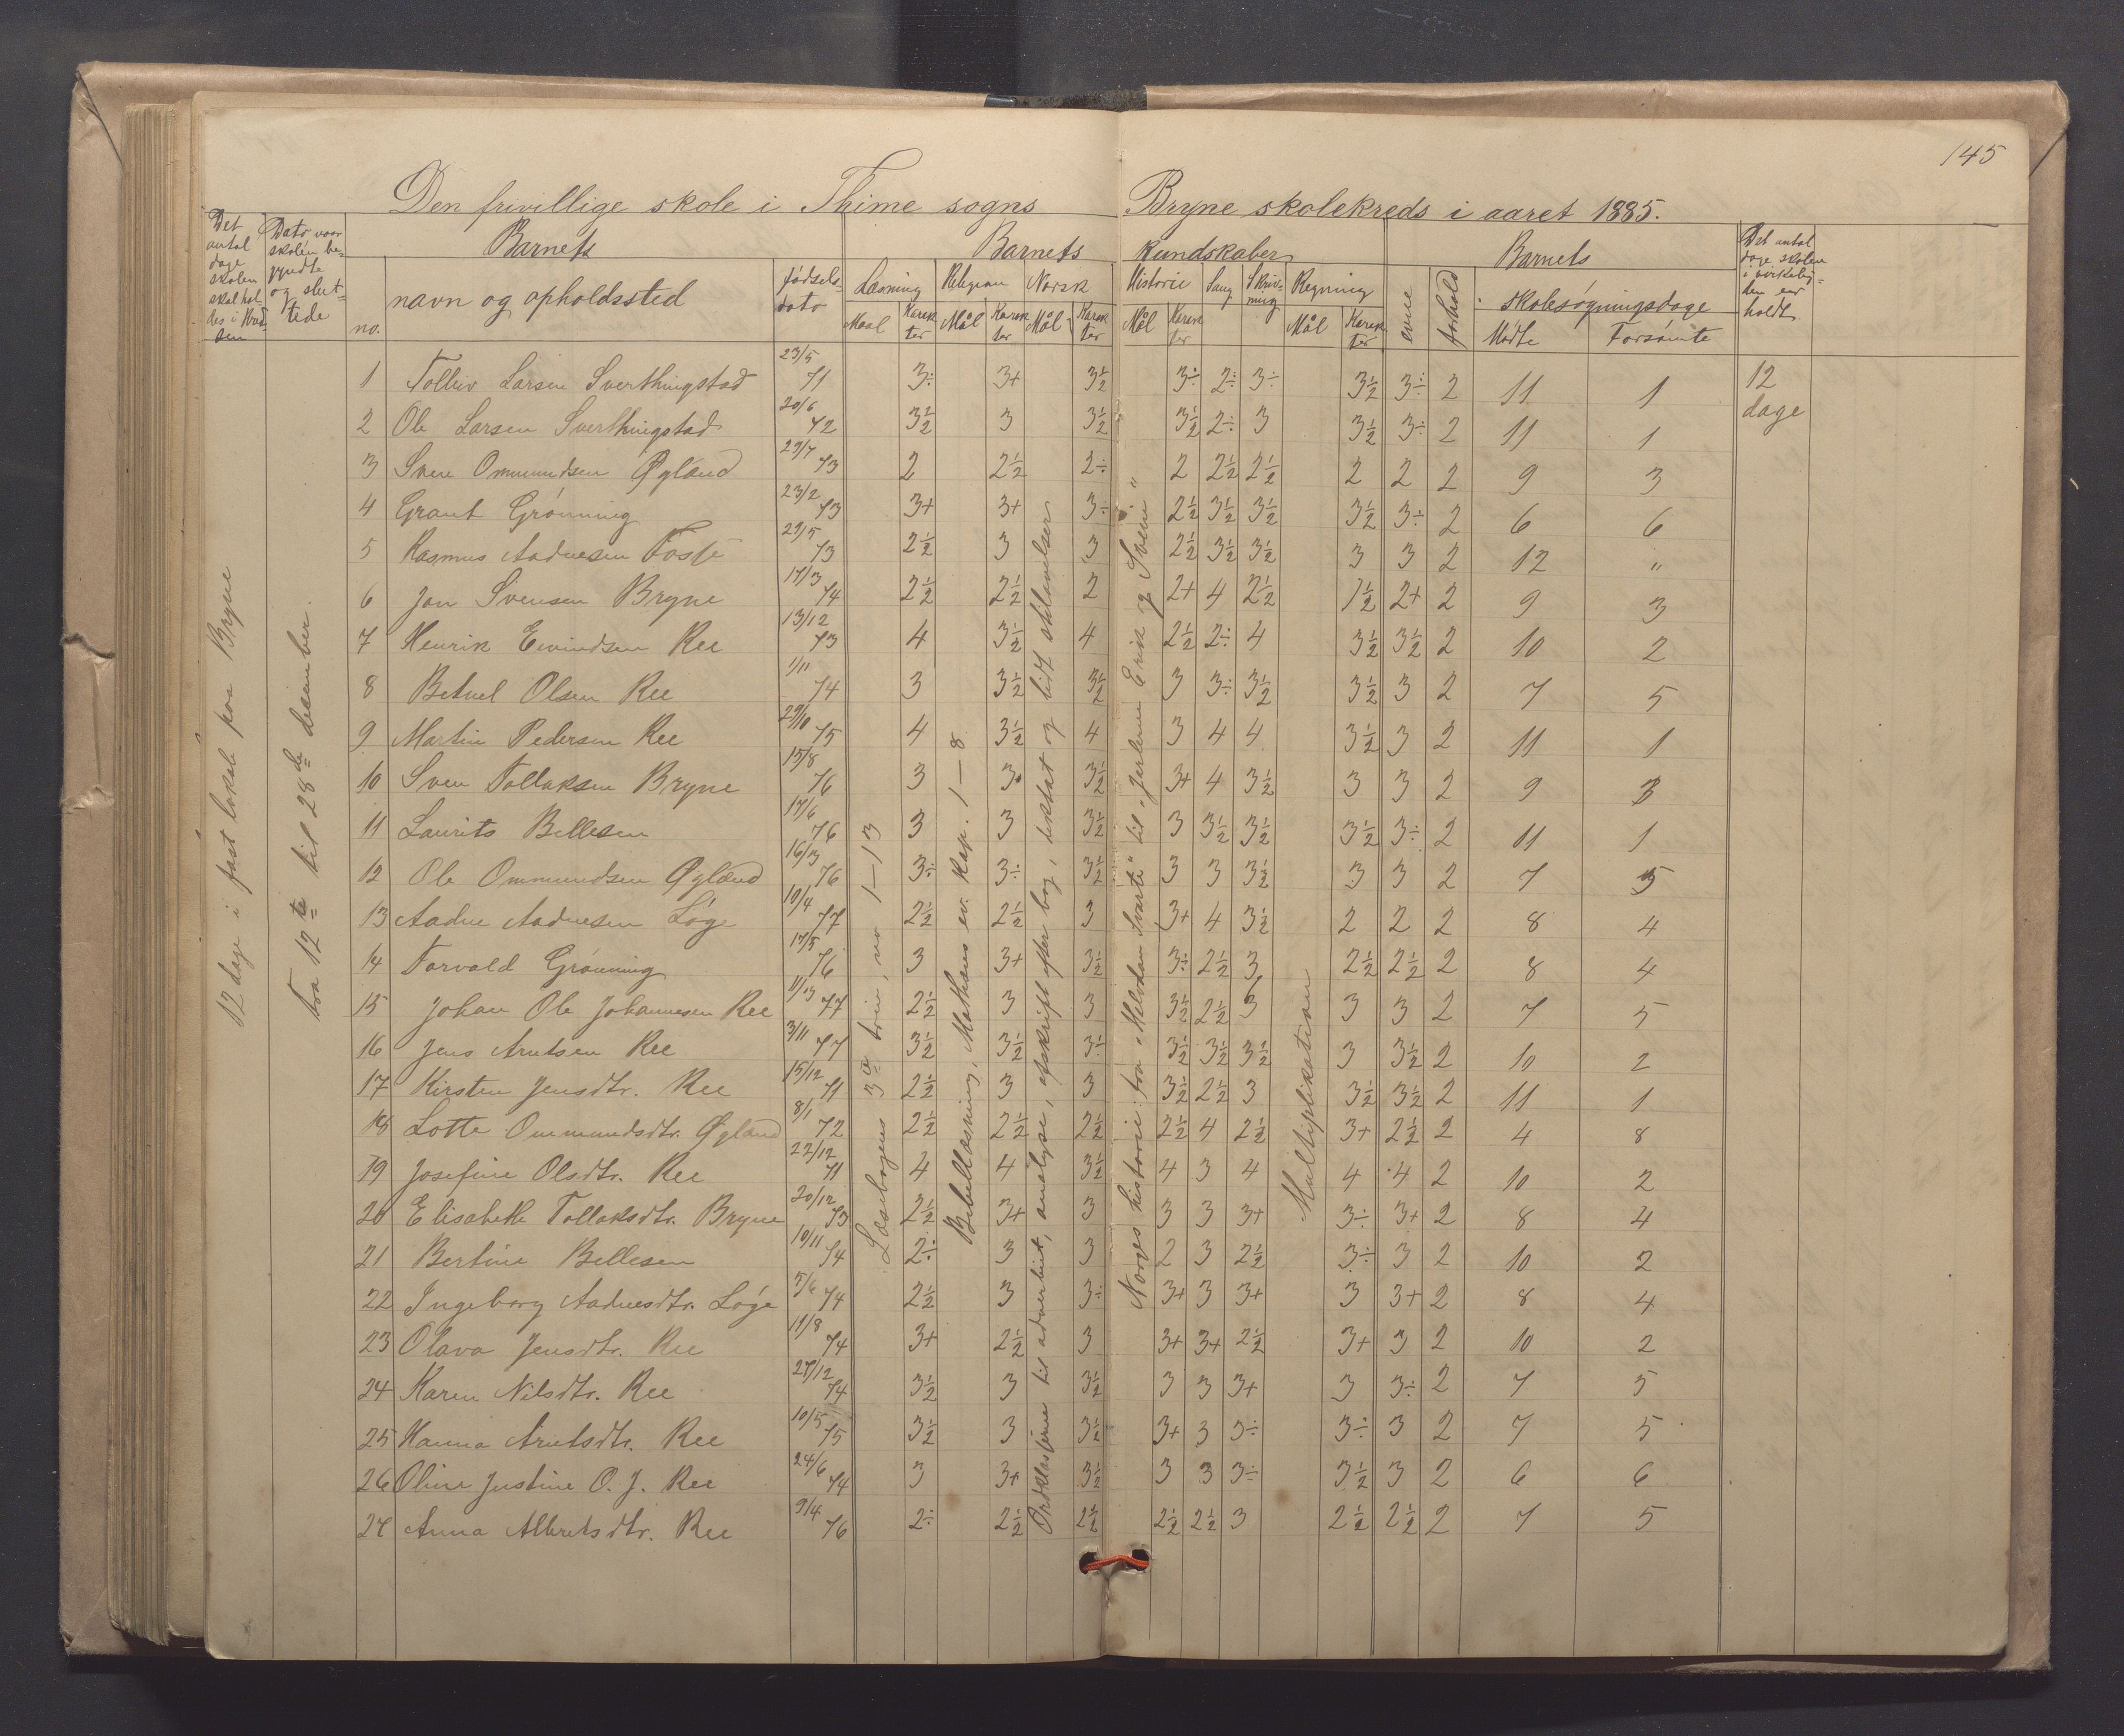 145
Den frivillige skole i Thime sogns Bryne skolekreds i aaret 1885.
Det antal dage skolen skal holdes i kredsen
Dato naar skolen begyndte og sluttede
Barnets
no.
navn og opholdssted
fødselsdato
Barnets kundskaber
Læsning Religion Norsk Historie Sang Skrivning Regning
Maal Karakter Mål Karakter Mål Karakter Mål Karakter Mål Karakter
evne
forhold
Barnets
skolesøgningsdage
Mødte Forsømte
Det antal dage skolen i virkeligheden er holdt
12 dage i fast lokale paa Bryne
Fra 12te til 28de desember.
Læsebogens 3die trin, no 1–13
Bibellæsning, Matheus ev. kap. 1–8
Ordklasserne til adverbiet, analyse, afskrift efter bog, diktat og lidt stiløvelser
Norges historie: fra "Halvdan Svarte" til "Jarlerne Erik og Svein"
Multiplikation
1 Tolliv Larsen Sverthingstad 23/5 71 3÷ 3+ 3½ 3÷ 2÷ 3÷ 3½ 3÷ 2 11 1 12 dage
2 Ole Larsen Sverthingstad 20/6 72 3½ 3 3½ 3½ 2÷ 3 3½ 3÷ 2 11 1
3 Sven Ommundsen Øgland 29/7 73 2 2½ 2÷ 2 2½ 2½ 2 2 2 9 3
4 Graut Grønning 23/2 73 3+ 3+ 3÷ 2½ 3½ 3½ 3½ 3÷ 2 6 6
5 Rasmus Aadnesen Fosse 29/5 73 2½ 3 3 2½ 3½ 3½ 3 3 2 12 "
6 Jon Svensen Bryne 17/3 74 2½ 2½ 2 2+ 4 2½ 1½ 2+ 2 9 3
7 Henrik Eivindsen Ree 13/12 73 4 3½ 4 2½ 2÷ 4 3½ 3½ 2 10 2
8 Betuel Olsen Ree 1/11 74 3 3½ 3½ 3 3÷ 3½ 3½ 3 2 7 5
9 Martin Pedersen Ree 29/10 75 4 3½ 4 3 4 4 3½ 3 2 11 1
10 Sven Tollaksen Bryne 15/8 76 3 3 3½ 3+ 4 3½ 3 3 2 9 3
11 Laurits Bellesen 17/6 76 3 3 3½ 3 3½ 3½ 3½ 3÷ 2 11 1
12 Ole Ommundsen Øgland 16/3 76 3÷ 3÷ 3½ 3 3 3½ 3 3 2 7 5
13 Aadne Aadnesen Løge 10/4 77 2½ 2½ 3 3+ 4 3½ 2 2 2 8 4
14 Torvald Grønning 17/5 76 3 3+ 3½ 3÷ 2½ 3 2½ 2½ 2 8 4
15 Johan Ole Johannesen Ree 11/3 77 2½ 3 3 3½ 2½ 3 3 3 2 7 5
16 Jens Arntsen Ree 3/11 77 3½ 3½ 3÷ 3½ 3½ 3½ 3 3½ 2 10 2
17 Kirsten Jensdtr. Ree 15/12 71 2½ 3 3 3½ 2½ 3 3½ 3½ 2 11 1
18 Lotte Ommundsdtr. Øgland 8/1 72 2½ 2½ 2½ 2½ 4 2½ 3+ 2½ 2 4 8
19 Josefine Olsdtr. Ree 22/12 71 4 4 3½ 4 3 4 4 4 2 10 2
20 Elisabeth Tollaksdtr. Bryne 20/12 73 2½ 3+ 3 3 3 3+ 3÷ 3+ 2 8 4
21 Bertine Bellesen 10/11 74 2÷ 3 3 2 3 2½ 3÷ 3 2 10 2
22 Ingeborg Aadnesdtr. Løge 5/6 74 2½ 3 3÷ 3+ 3 3+ 3 3+ 2 8 4
23 Olava Jensdtr. Ree 11/8 74 3+ 2½ 3 3+ 3+ 2½ 3+ 3 2 10 2
24 Karen Nilsdtr. Ree 27/12 74 3½ 3 3½ 3 3 3+ 3 3÷ 2 7 5
25 Hanna Arntsdtr. Ree 10/5 75 3½ 3 3½ 3+ 3 3÷ 3÷ 3 2 7 5
26 Oline Justine O. J. Ree 24/6 74 3 3+ 3½ 3 3 3÷ 3½ 3 2 6 6
27 Anna Albretsdtr. Ree 9/4 76 2÷ 2½ 2½ 2½ 2½ 3 2½ 2½ 2 7 5